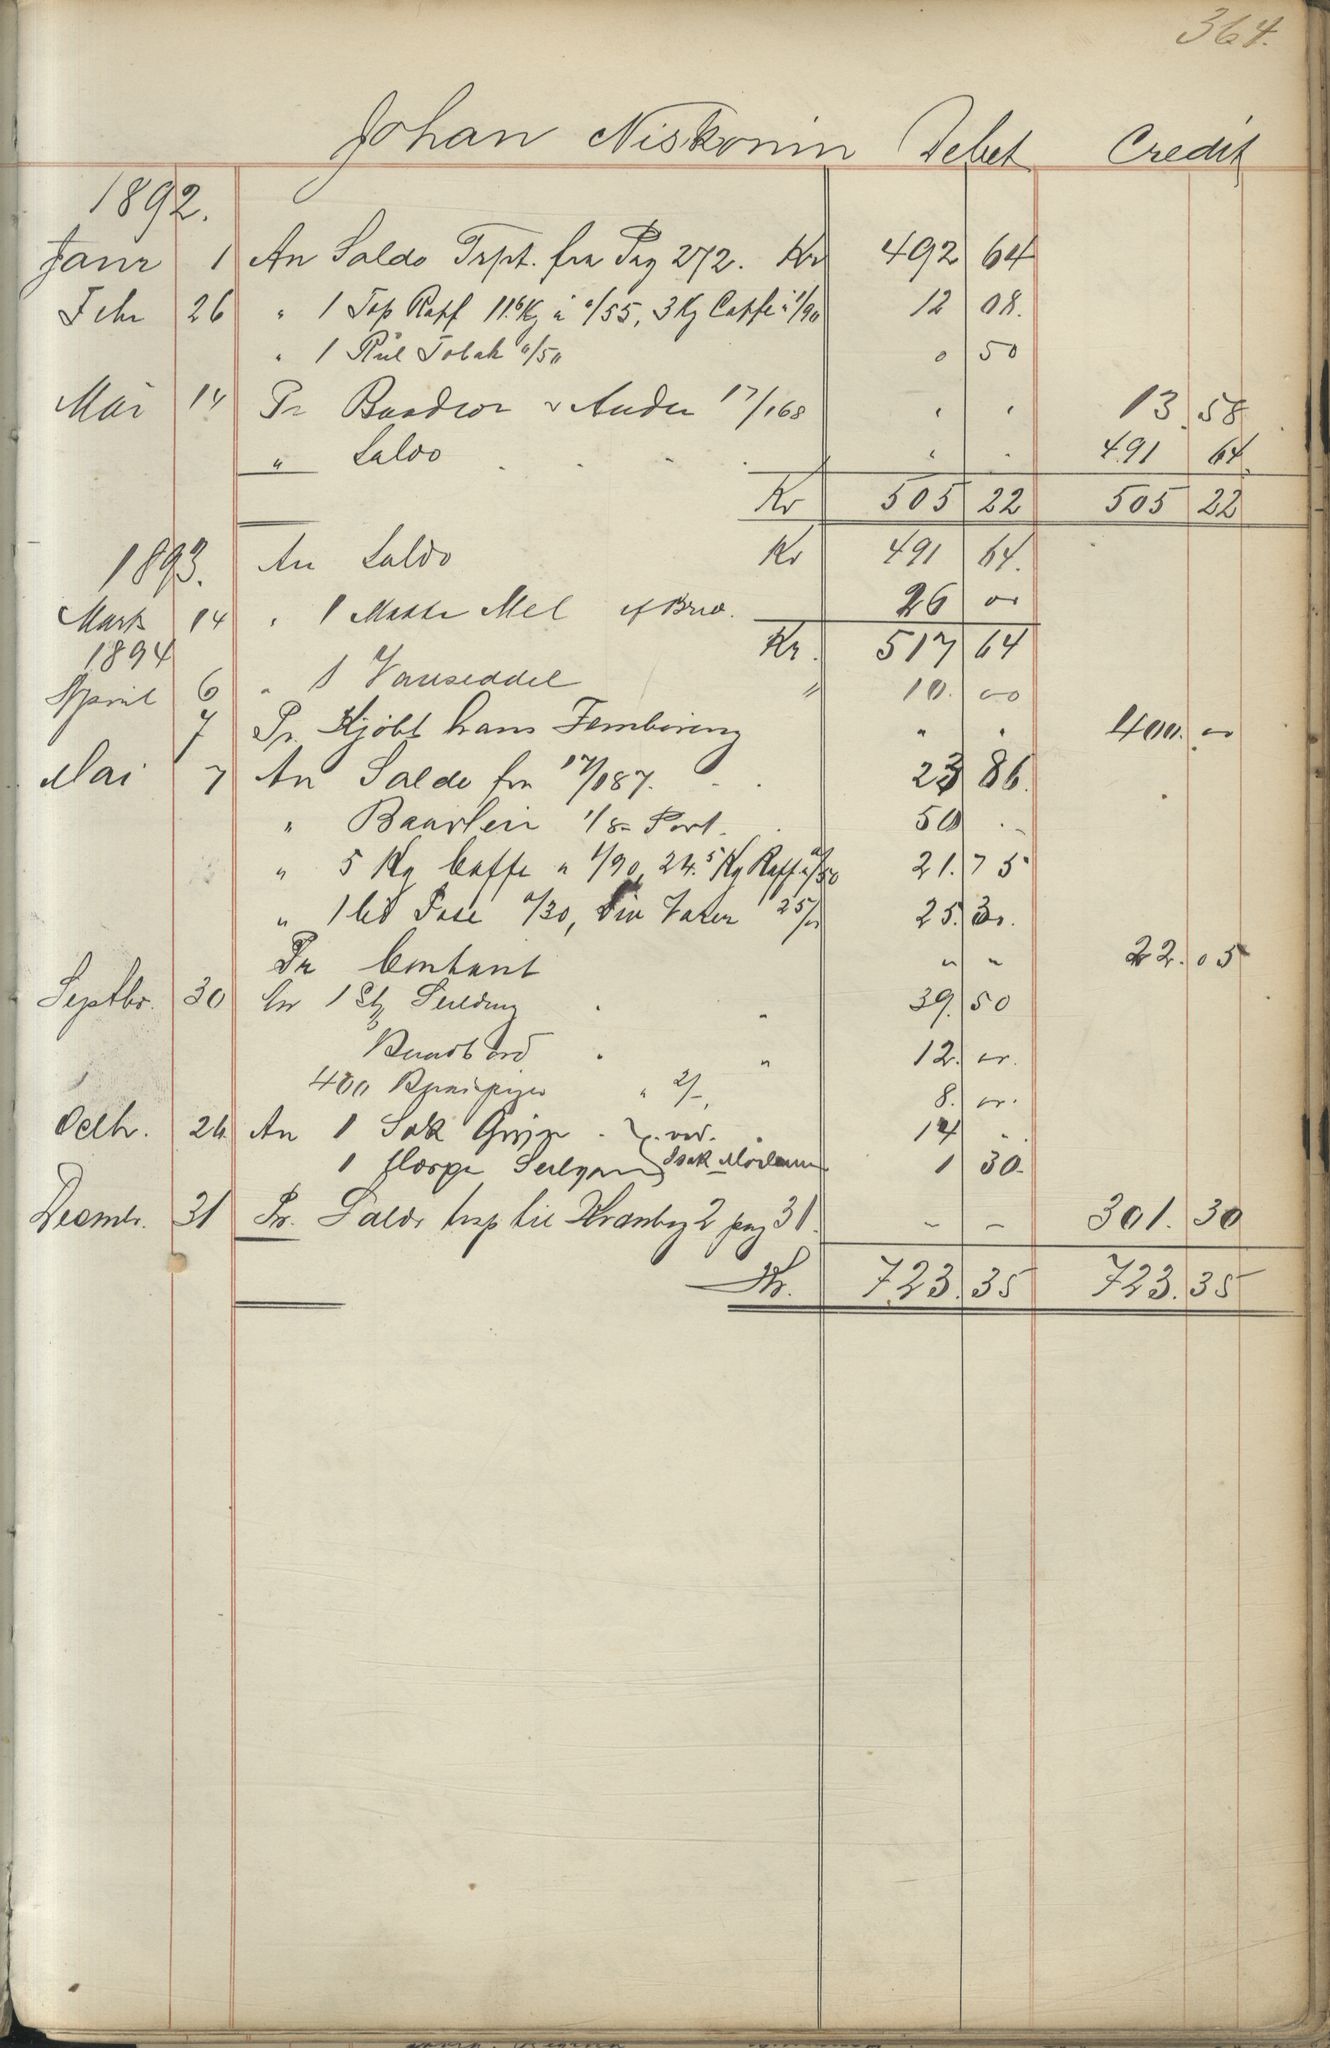 364.
Johan Niskonin Debet Credit
1892.
Janr 1 An Saldo Trpt. fra Pag 272. Kr 492 64
Febr 26 " 1 Top Raff 11.6 Kg a "/55, 3 Kg Caffe a 1/90 12 08.
" 1 Rul Tobak "/50 0 50
Mai 14 Pr 17/168 " " 13.58
" Saldo " " 491 64
Kr 505 22 505 22
1893. An Saldo Kr 491 64.
Marts 14 " 1 Matte Mel 26 00
1894 Kr. 517 64
April 6 " 1 " 10. 00
7 Pr. Kjöbt hans Fembøring " " 400. 00
Mai 7 An Saldo fra 17/187. 23 86.
" 50 . -
" 5 Kg Caffe a 1/90, 24.5 Kg Raff a "/50 21.75
" 1 Pose "/30, Div Varer 25/00 25.30.
Pr Contant " " 22.05
Septbr. 30 An 1 39.50
12. 00.
400 " 2/-, 8. 00.
Octbr. 26 An 1 Sæk ved. 14 . .
1 Isak 1 30.
Decmbr. 31 Pr. Saldo trsp til 2 pag 31. - - 301. 30
Kr. 723.35 723.35